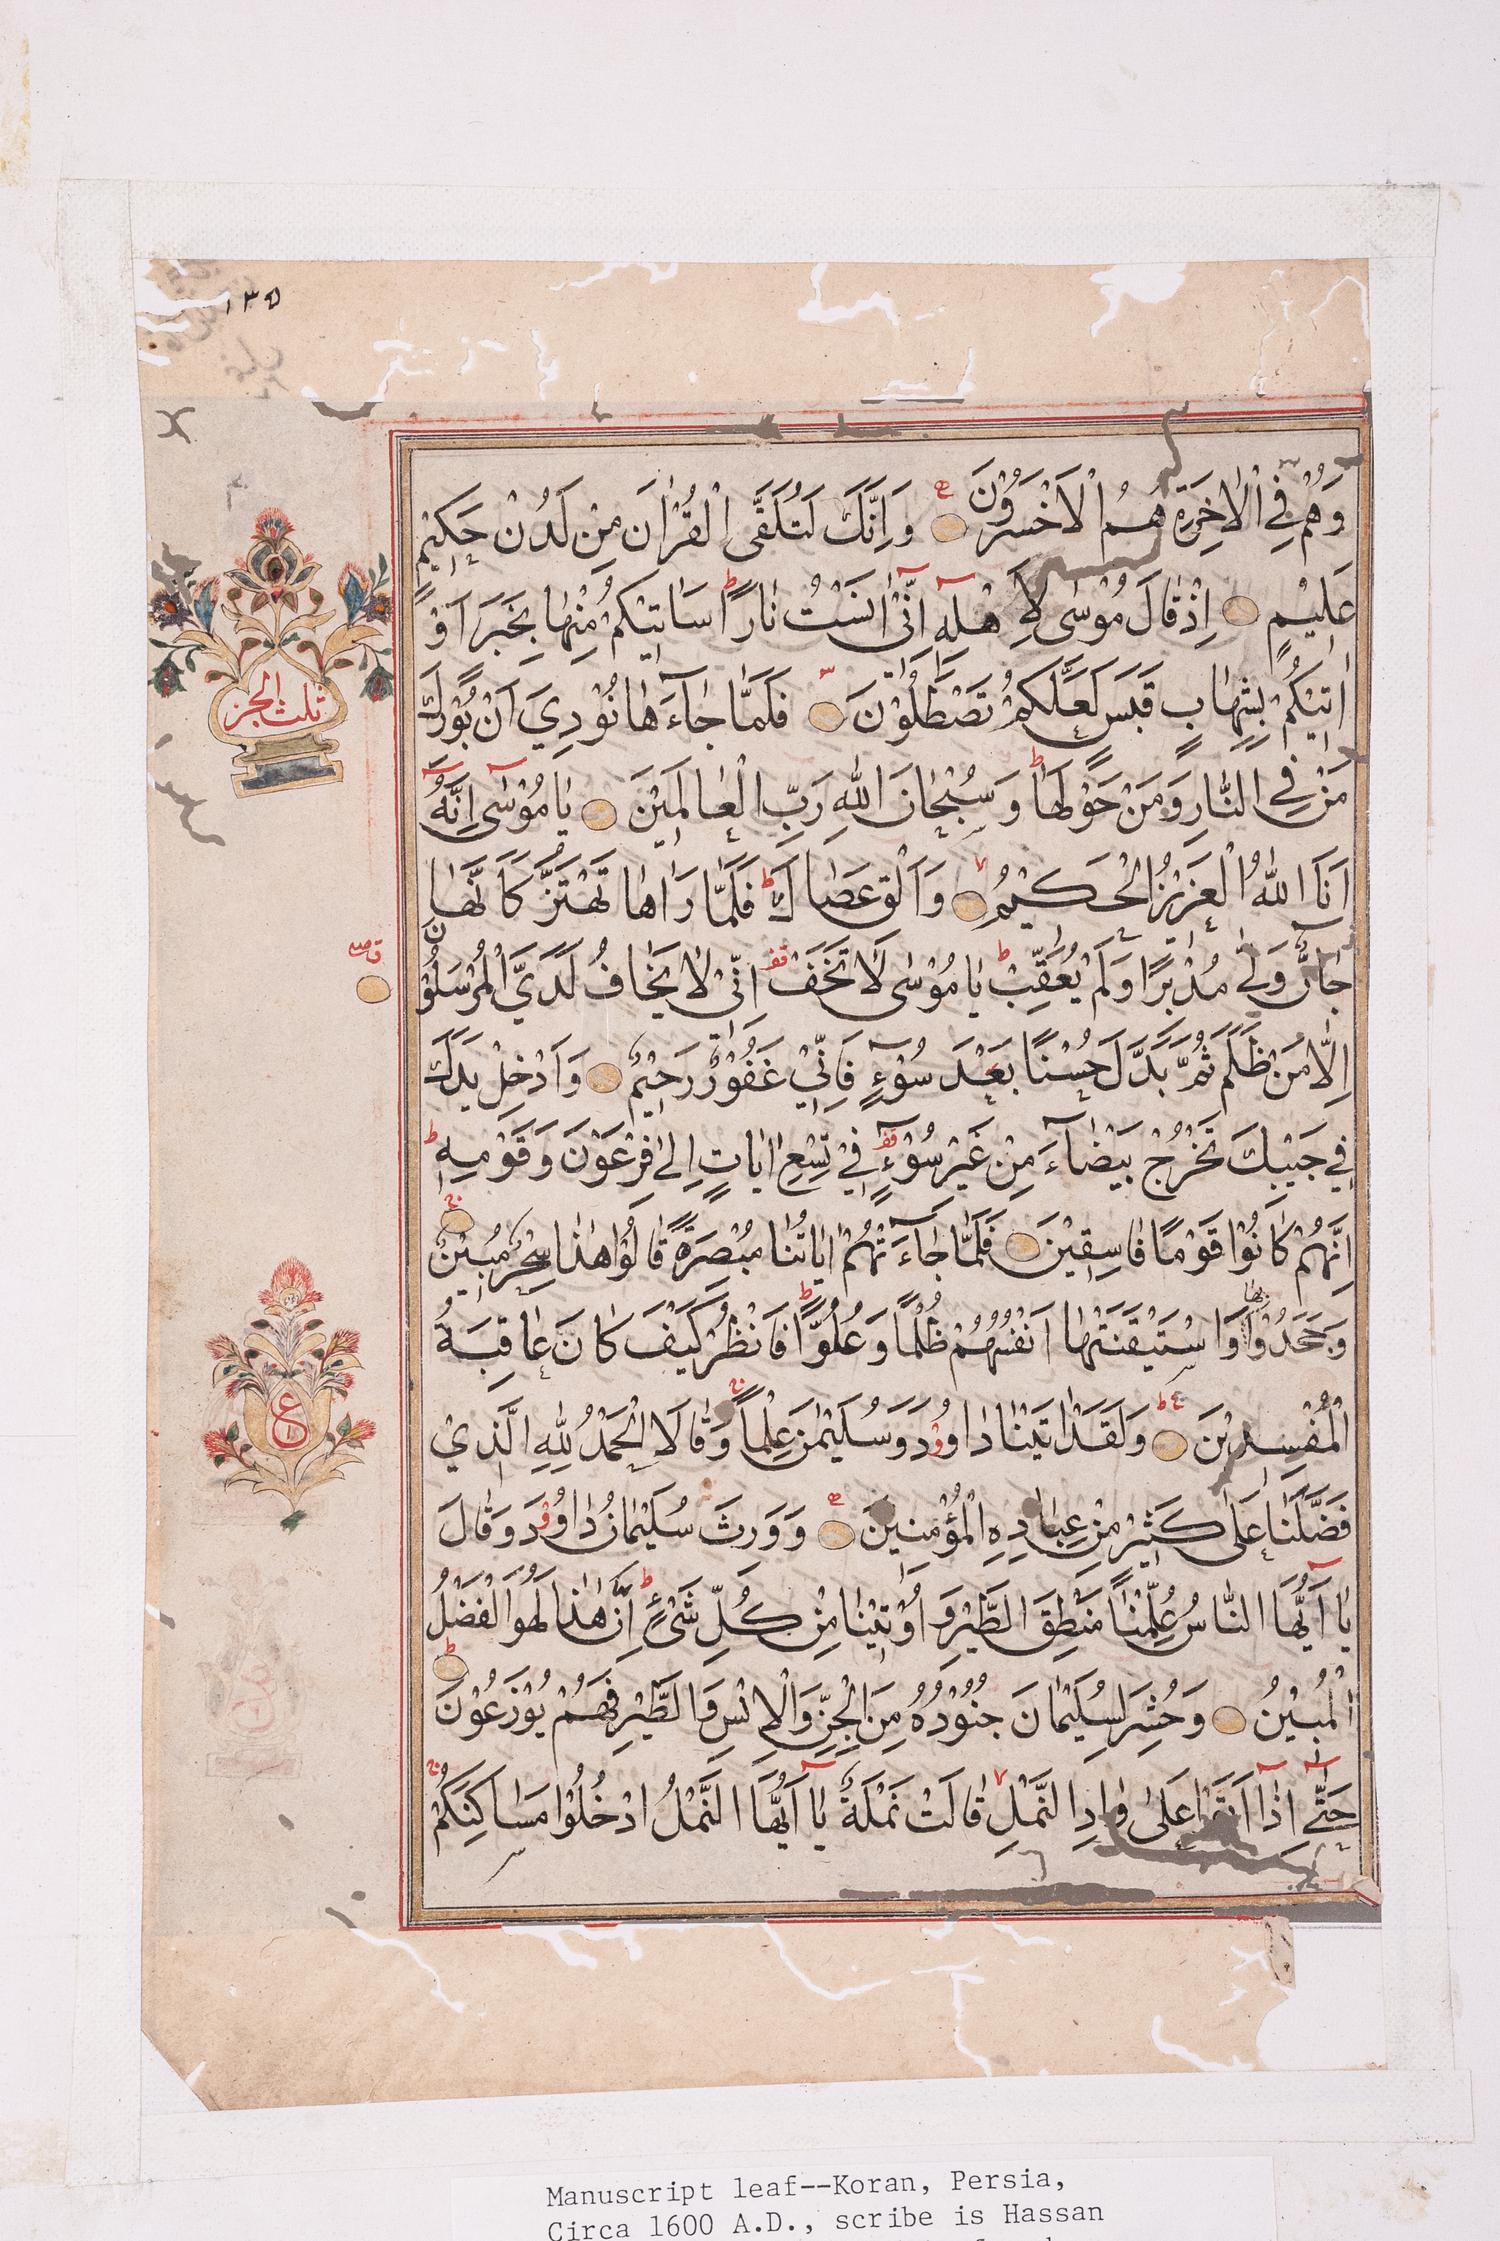 ١٣٥
وَهُمْ فِي الْاٰخِرَةِ هُمُ الْاَخْسَرُوْنَ وَاِنَّكَ لَتُلَقَّى الْقُرْاٰنَ مِنْ لَدُنْ حَكِيْمٍ
عَلِيْمٍ اِذْ قَالَ مُوْسٰى لِاَهْلِهٖ اِنِّيْ اٰنَسْتُ نَارًا ط سَاٰتِيْكُمْ مِنْهَا بِخَبَرٍ اَوْ
اٰتِيْكُمْ بِشِهَابٍ قَبَسٍ لَعَلَّكُمْ تَصْطَلُوْنَ فَلَمَّا جَآءَهَا نُوْدِيَ اَنْ بُوْرِكَ
ثلث الجز
مَنْ فِي النَّارِ وَمَنْ حَوْلَهَا ط وَسُبْحَانَ اللّٰهِ رَبِّ الْعَالَمِيْنَ يَا مُوْسٰى اِنَّهٗ
اَنَا اللّٰهُ الْعَزِيْزُ الْحَكِيْمُ وَاَلْقِ عَصَاكَ ط فَلَمَّا رَاٰهَا تَهْتَزُّ كَاَنَّهَا
جَانٌّ وَلّٰى مُدْبِرًا وَلَمْ يُعَقِّبْ ط يَا مُوْسٰى لَا تَخَفْ قف اِنِّيْ لَا يَخَافُ لَدَيَّ الْمُرْسَلُوْنَ
اِلَّا مَنْ ظَلَمَ ثُمَّ بَدَّلَ حُسْنًا بَعْدَ سُوْٓءٍ فَاِنِّيْ غَفُوْرٌ رَحِيْمٌ وَاَدْخِلْ يَدَكَ
فِيْ جَيْبِكَ تَخْرُجْ بَيْضَآءَ مِنْ غَيْرِ سُوْٓءٍ قف فِيْ تِسْعِ اٰيَاتٍ اِلٰى فِرْعَوْنَ وَقَوْمِهٖ ط
اِنَّهُمْ كَانُوْا قَوْمًا فَاسِقِيْنَ فَلَمَّا جَآءَتْهُمْ اٰيَاتُنَا مُبْصِرَةً قَالُوْا هٰذَا سِحْرٌ مُبِيْنٌ
وَجَحَدُوْا بها وَاسْتَيْقَنَتْهَا اَنْفُسُهُمْ ظُلْمًا وَعُلُوًّا ط فَانْظُرْ كَيْفَ كَانَ عَاقِبَةُ
الْمُفْسِدِيْنَ وَلَقَدْ اٰتَيْنَا دَاوُوْدَ وَسُلَيْمٰنَ عِلْمًا ج وَقَالَا الْحَمْدُ لِلّٰهِ الَّذِيْ
ع
فَضَّلَنَا عَلٰى كَثِيْرٍ مِنْ عِبَادِهِ الْمُؤْمِنِيْنَ وَوَرِثَ سُلَيْمَانُ دَاوُوْدَ وَقَالَ
يَا اَيُّهَا النَّاسُ عُلِّمْنَا مَنْطِقَ الطَّيْرِ وَاُوْتِيْنَا مِنْ كُلِّ شَيْءٍ ط اِنَّ هٰذَا لَهُوَ الْفَضْلُ
الْمُبِيْنُ وَحُشِرَ لِسُلَيْمَانَ جُنُوْدُهٗ مِنَ الْجِنِّ وَالْاِنْسِ وَالطَّيْرِ فَهُمْ يُوْزَعُوْنَ
حَتّٰى اِذَا اَتَوْا عَلٰى وَادِ النَّمْلِ قَالَتْ نَمْلَةٌ يَا اَيُّهَا النَّمْلُ ادْخُلُوْا مَسَاكِنَكُمْ ج
Manuscript leaf--Koran, Persia,
Circa 1600 A.D., scribe is Hassan